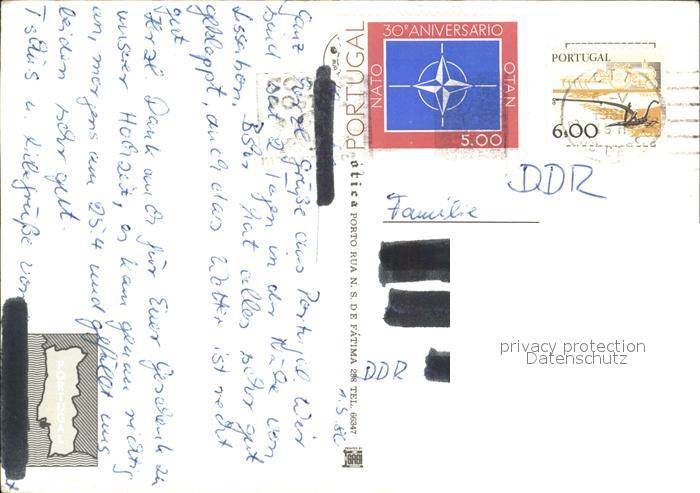 Ganz liebe Grüße aus Portugal. Wir
sind seit 2 Tagen in der Nähe von
Lissabon. Bisher hat alles sehr gut
geklappt, auch das Wetter ist recht
gut
Herzl. Dank auch für Euer Geschenk zu
unserer Hochzeit, es kam genau richtig
an, morgens am 25.4 und gefällt uns
beiden sehr gut.
Tschüs u. liebe Grüße von
PORTUGAL
ótica PORTO RUA N. S. DE FÁTIMA 288 TEL. 66347
PRINTED BY
1.5.80
30º ANIVERSÁRIO
PORTUGAL
NATO
OTAN
5.00
PORTUGAL
6$00
DDR
Familie
DDR
privacy protection
Datenschutz